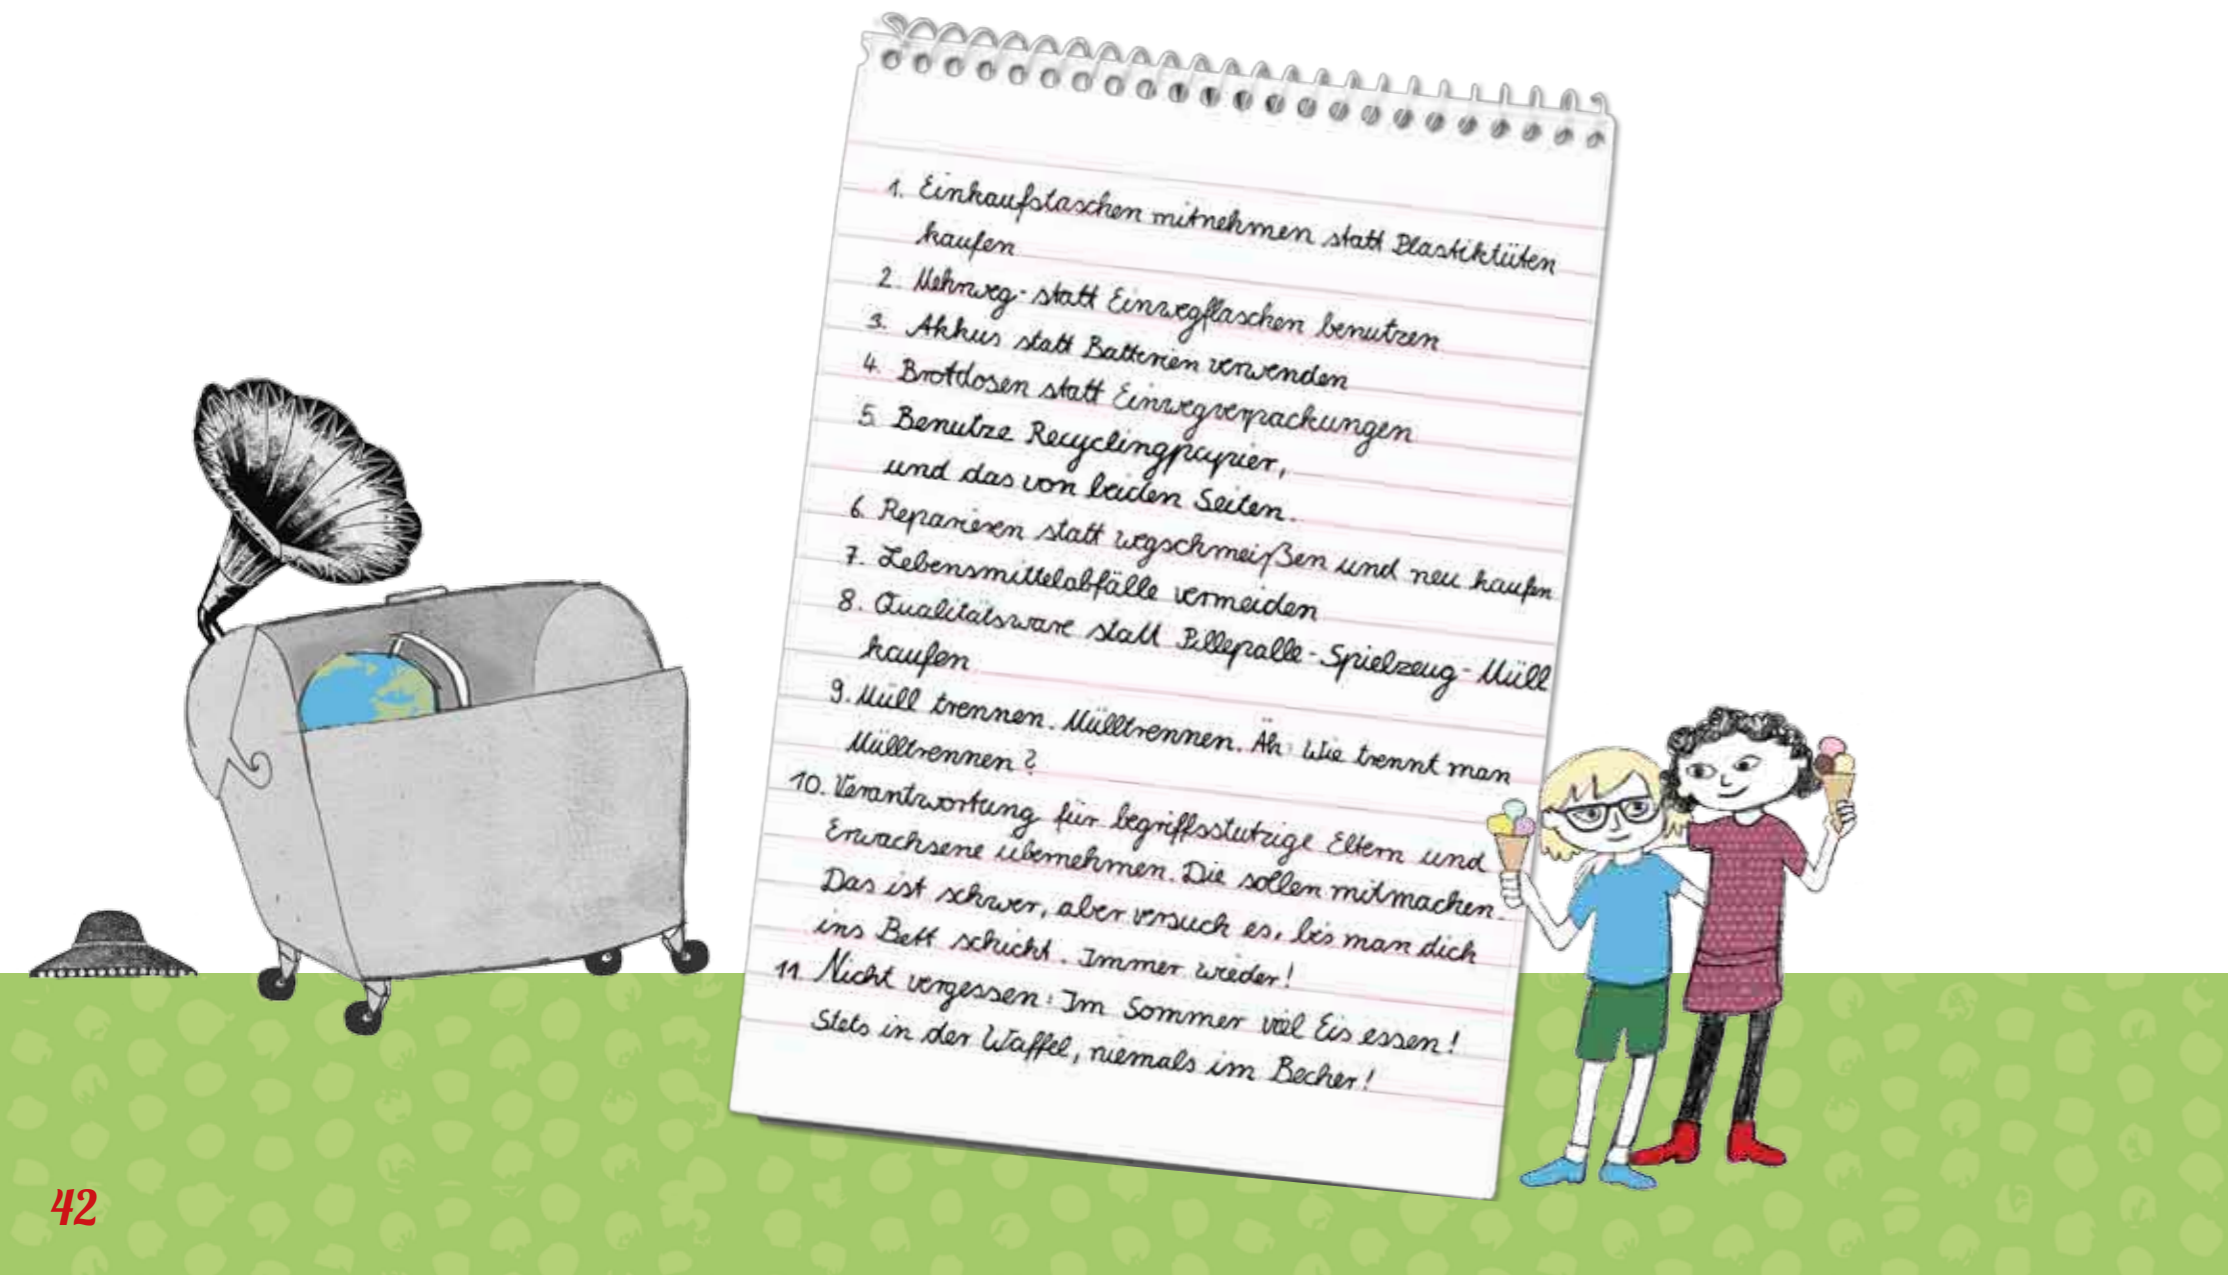 1. Einkaufstaschen mitnehmen statt Plastiktüten
kaufen
2. Mehrweg- statt Einwegflaschen benutzen
3. Akkus statt Batterien verwenden
4. Brotdosen statt Einwegverpackungen
5. Benutze Recyclingpapier,
und das von beiden Seiten.
6. Reparieren statt wegschmeißen und neu kaufen
7. Lebensmittelabfälle vermeiden
8. Qualitätsware statt Pillepalle-Spielzeug-Müll
kaufen
9. Müll trennen. Mülltrennen. Äh: Wie trennt man
Mülltrennen?
10. Verantwortung für begriffsstutzige Eltern und
Erwachsene übernehmen. Die sollen mitmachen.
Das ist schwer, aber versuch es, bis man dich
ins Bett schickt. Immer wieder!
11. Nicht vergessen: Im Sommer viel Eis essen!
Stets in der Waffel, niemals im Becher!
42